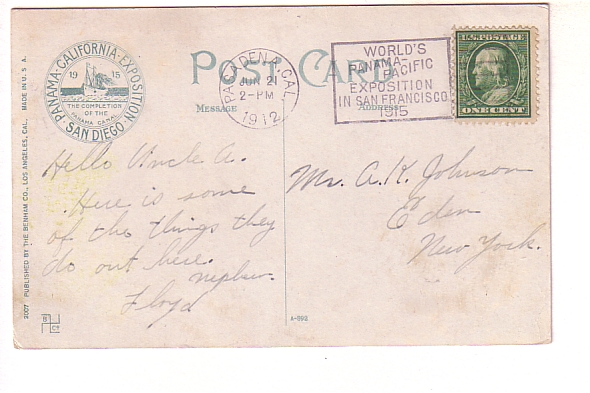 PANAMA-CALIFORNIA-EXPOSITION
1915
THE COMPLETION
OF THE
PANAMA CANAL
SAN DIEGO
2007 PUBLISHED BY THE BENHAM CO., LOS ANGELES, CAL. MADE IN U. S. A.
POST CARD
MESSAGE
ADDRESS
PASADENA, CAL.
JUN 21
2-PM
1912
WORLD'S
PANAMA-
PACIFIC
EXPOSITION
IN SAN FRANCISCO
1915
U.S. POSTAGE
ONE CENT
Hello Uncle A.
Here is some
of the things they
do out here.
nephew
Floyd
Mr. A. K. Johnson
Eden
New York.
B
Co
A-892